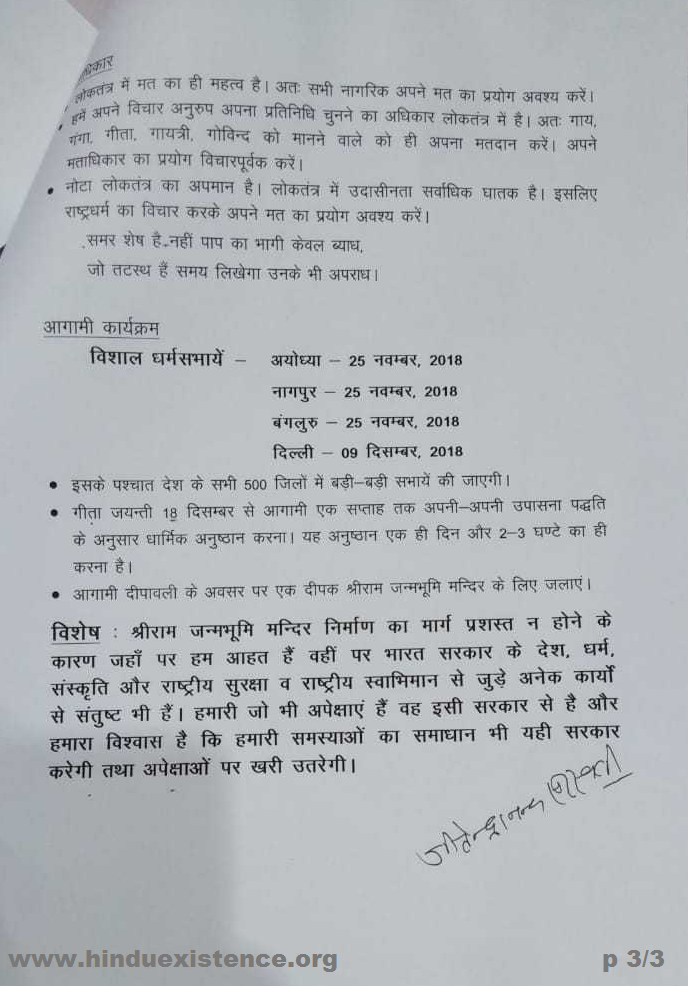 धिकार
लोकतंत्र में मत का ही महत्व है। अतः सभी नागरिक अपने मत का प्रयोग अवश्य करें।
• हमें अपने विचार अनुरुप अपना प्रतिनिधि चुनने का अधिकार लोकतंत्र में है। अतः गाय,
गंगा, गीता, गायत्री, गोविन्द को मानने वाले को ही अपना मतदान करें। अपने
मताधिकार का प्रयोग विचारपूर्वक करें।
• नोटा लोकतंत्र का अपमान है। लोकतंत्र में उदासीनता सर्वाधिक घातक है। इसलिए
राष्ट्रधर्म का विचार करके अपने मत का प्रयोग अवश्य करें।
समर शेष है नहीं पाप का भागी केवल ब्याध,
जो तटस्थ हैं समय लिखेगा उनके भी अपराध।
आगामी कार्यक्रम
विशाल धर्मसभायें – अयोध्या – 25 नवम्बर, 2018
नागपुर – 25 नवम्बर, 2018
बंगलुरु – 25 नवम्बर, 2018
दिल्ली – 09 दिसम्बर, 2018
• इसके पश्चात देश के सभी 500 जिलों में बड़ी–बड़ी सभायें की जाएगी।
• गीता जयन्ती 18 दिसम्बर से आगामी एक सप्ताह तक अपनी–अपनी उपासना पद्धति
के अनुसार धार्मिक अनुष्ठान करना। यह अनुष्ठान एक ही दिन और 2–3 घण्टे का ही
करना है।
• आगामी दीपावली के अवसर पर एक दीपक श्रीराम जन्मभूमि मन्दिर के लिए जलाएं।
विशेष : श्रीराम जन्मभूमि मन्दिर निर्माण का मार्ग प्रशस्त न होने के
कारण जहाँ पर हम आहत हैं वहीं पर भारत सरकार के देश, धर्म,
संस्कृति और राष्ट्रीय सुरक्षा व राष्ट्रीय स्वाभिमान से जुड़े अनेक कार्यो
से संतुष्ट भी हैं। हमारी जो भी अपेक्षाएं हैं वह इसी सरकार से है और
हमारा विश्वास है कि हमारी समस्याओं का समाधान भी यही सरकार
करेगी तथा अपेक्षाओं पर खरी उतरेगी।
www.hinduexistence.org
p 3/3